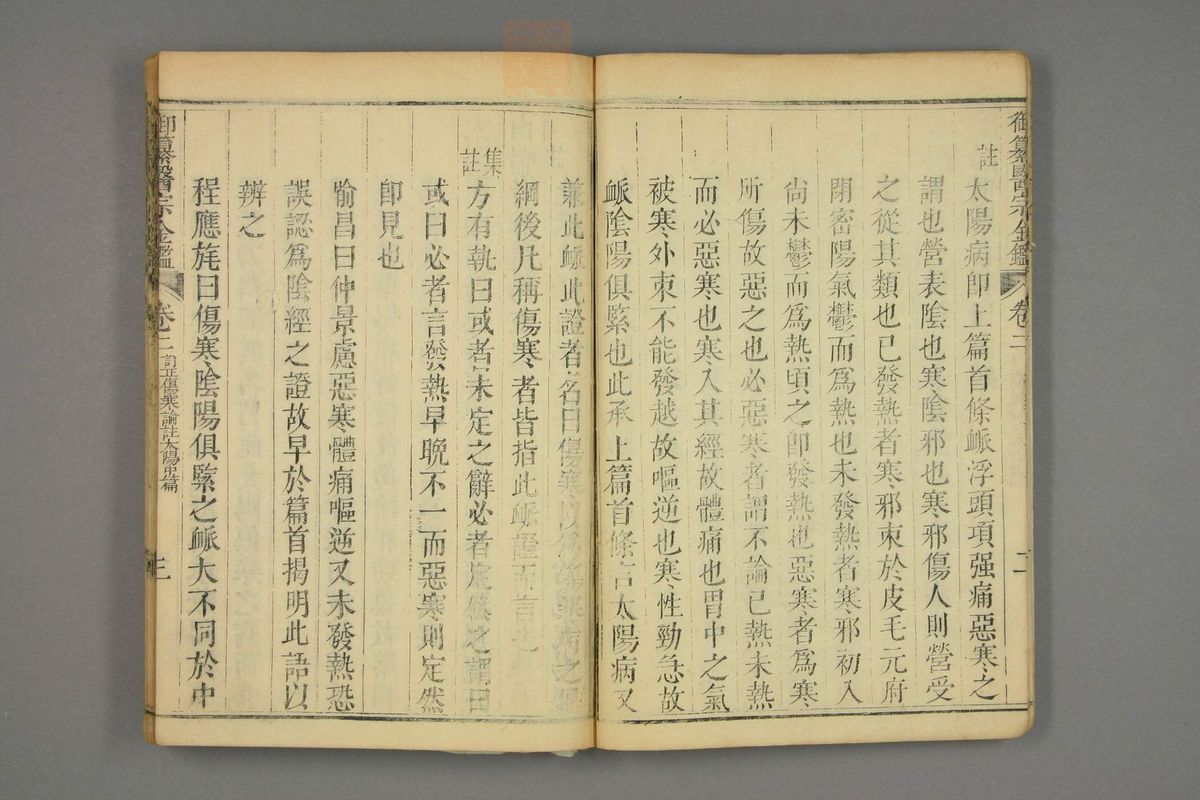 御纂醫宗金鑑 卷二 二
註
太陽病卽上篇首條脈浮頭項强痛惡寒之
謂也營表陰也寒陰邪也寒邪傷人則營受
之從其類也已發熱者寒邪束於皮毛元府
閉密陽氣鬱而爲熱也未發熱者寒邪初入
尙未鬱而爲熱頃之卽發熱也惡寒者爲寒
所傷故惡之也必惡寒者謂不論已熱未熱
而必惡寒也寒入其經故體痛也胃中之氣
被寒外束不能發越故嘔逆也寒性勁急故
脈陰陽俱緊也此承上篇首條言太陽病又
兼此脈此證者名曰傷寒以爲傷寒病之
綱後凡稱傷寒者皆指此脈證而言也
集註
方有執曰或者未定之辭必者定然之謂曰
或曰必者言發熱早晚不一而惡寒則定然
卽見也
喻昌曰仲景慮惡寒體痛嘔逆又未發熱恐
誤認爲陰經之證故早於篇首揭明此語以
辨之
程應旄曰傷寒陰陽俱緊之脈大不同於中
御纂醫宗金鑑 卷二 訂正傷寒論註太陽中篇